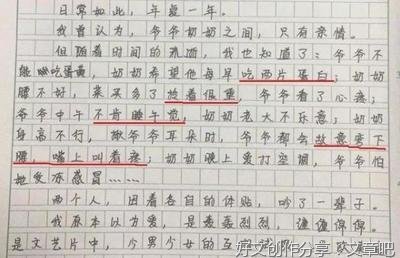 日常如此，年复一年。
我曾认为，爷爷奶奶之间，只有亲情。
但随着时间的流逝，我也知道了：爷爷不
能吃蛋黄，奶奶希望他每早吃两片蛋白；奶奶
腰不好，菜买多了拎着很重，爷爷看了心疼；
爷爷中午不肯睡午觉，奶奶老大不乐意；奶奶
身高不行，揪爷爷耳朵时，爷爷都会故意弯下
腰，嘴上叫着疼；奶奶晚上爱打空调，爷爷怕
她受冻感冒……
两个人，因着各自的体贴，吵了一辈子。
我原本以为爱，是轰轰烈烈，缠缠绵绵。
是文艺片中，少男少女的互
好文创作分享，文章吧